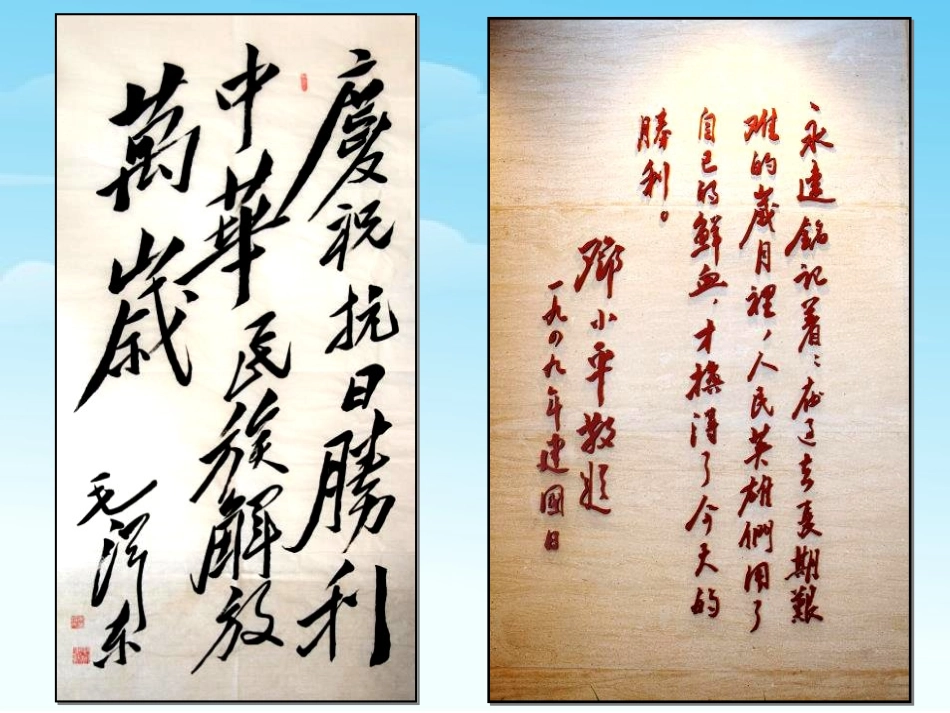 慶祝抗日勝利
中華民族解放
萬歲
毛澤东
永遠銘記着：在过去長期艱
难的歲月裡，人民英雄們用了
自己的鮮血，才換得了今天的
勝利。
鄧小平敬題
一九四九年建國日